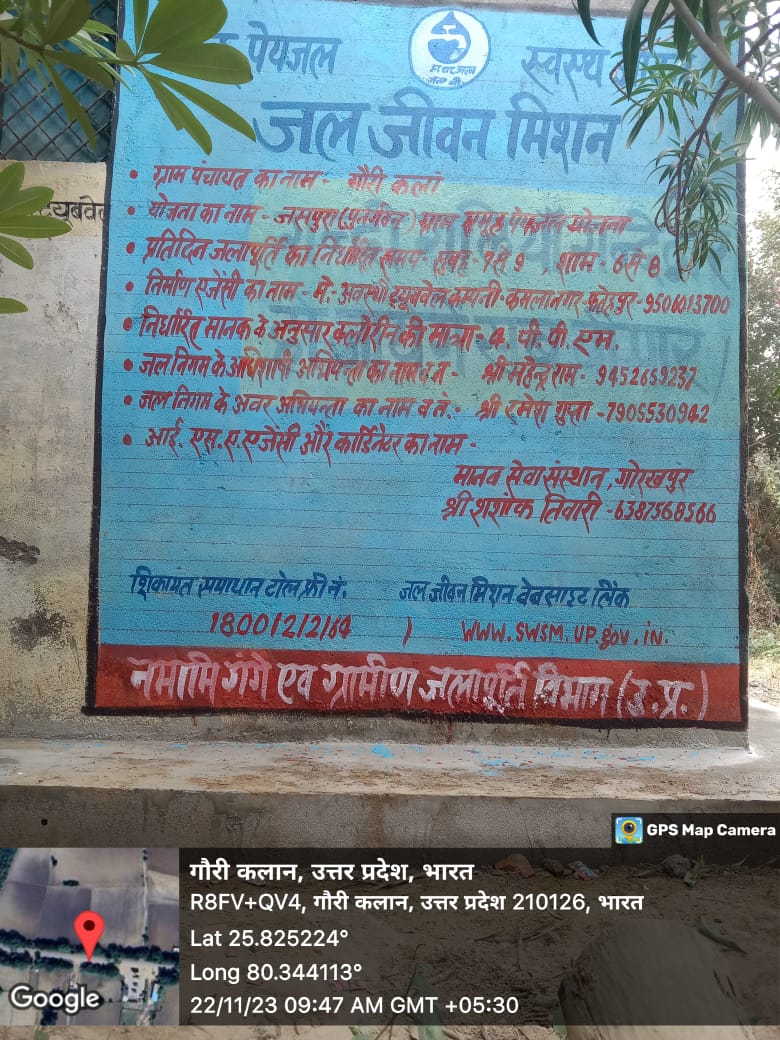 पेयजल
स्वस्थ
हर घर जल
जल जीवन मिशन
• ग्राम पंचायत का नाम - गौरी कलां
• योजना का नाम - जसपुरा (पुनर्गठन) ग्राम समूह पेयजल योजना
• प्रतिदिन जलापूर्ति का निर्धारित समय- सुबह - 7 से 9 , शाम - 6 से 8
• निर्माण एजेंसी का नाम - मे. अवस्थी ट्यूबवेल कम्पनी-कमलानगर फतेहपुर-9506013700
• निर्धारित मानक के अनुसार क्लोरीन की मात्रा- 4. पी. पी. एम.
• जल निगम के अधिशाषी अभियन्ता का नाम व.न - श्री महेन्द्र राम - 9452659237
• जल निगम के अवर अभियन्ता का नाम व नं.- श्री रमेश गुप्ता -7905530942
• आई. एस. ए. एजेंसी और कार्डिनेटर का नाम -
मानव सेवा संस्थान, गोरखपुर
श्री शशांक तिवारी -6387568566
शिकायत समाधान टोल फ्री नं. जल जीवन मिशन वेबसाइट लिंक
18001212164 ) WWW. SWSM. UP. gov. in.
नमामि गंगे एवं ग्रामीण जलापूर्ति विभाग (उ.प्र.)
ट्यूबवेल
GPS Map Camera
गौरी कलान, उत्तर प्रदेश, भारत
R8FV+QV4, गौरी कलान, उत्तर प्रदेश 210126, भारत
Lat 25.825224°
Long 80.344113°
22/11/23 09:47 AM GMT +05:30
Google